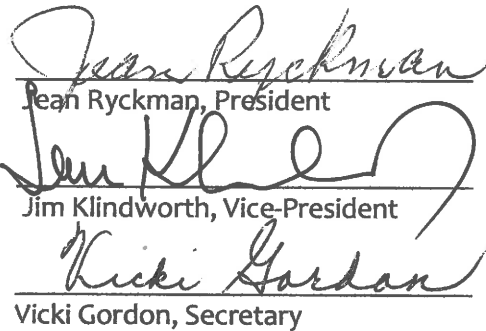 Jean Ryckman
Jean Ryckman, President
Jim Kl
Jim Klindworth, Vice-President
Vicki Gordon
Vicki Gordon, Secretary